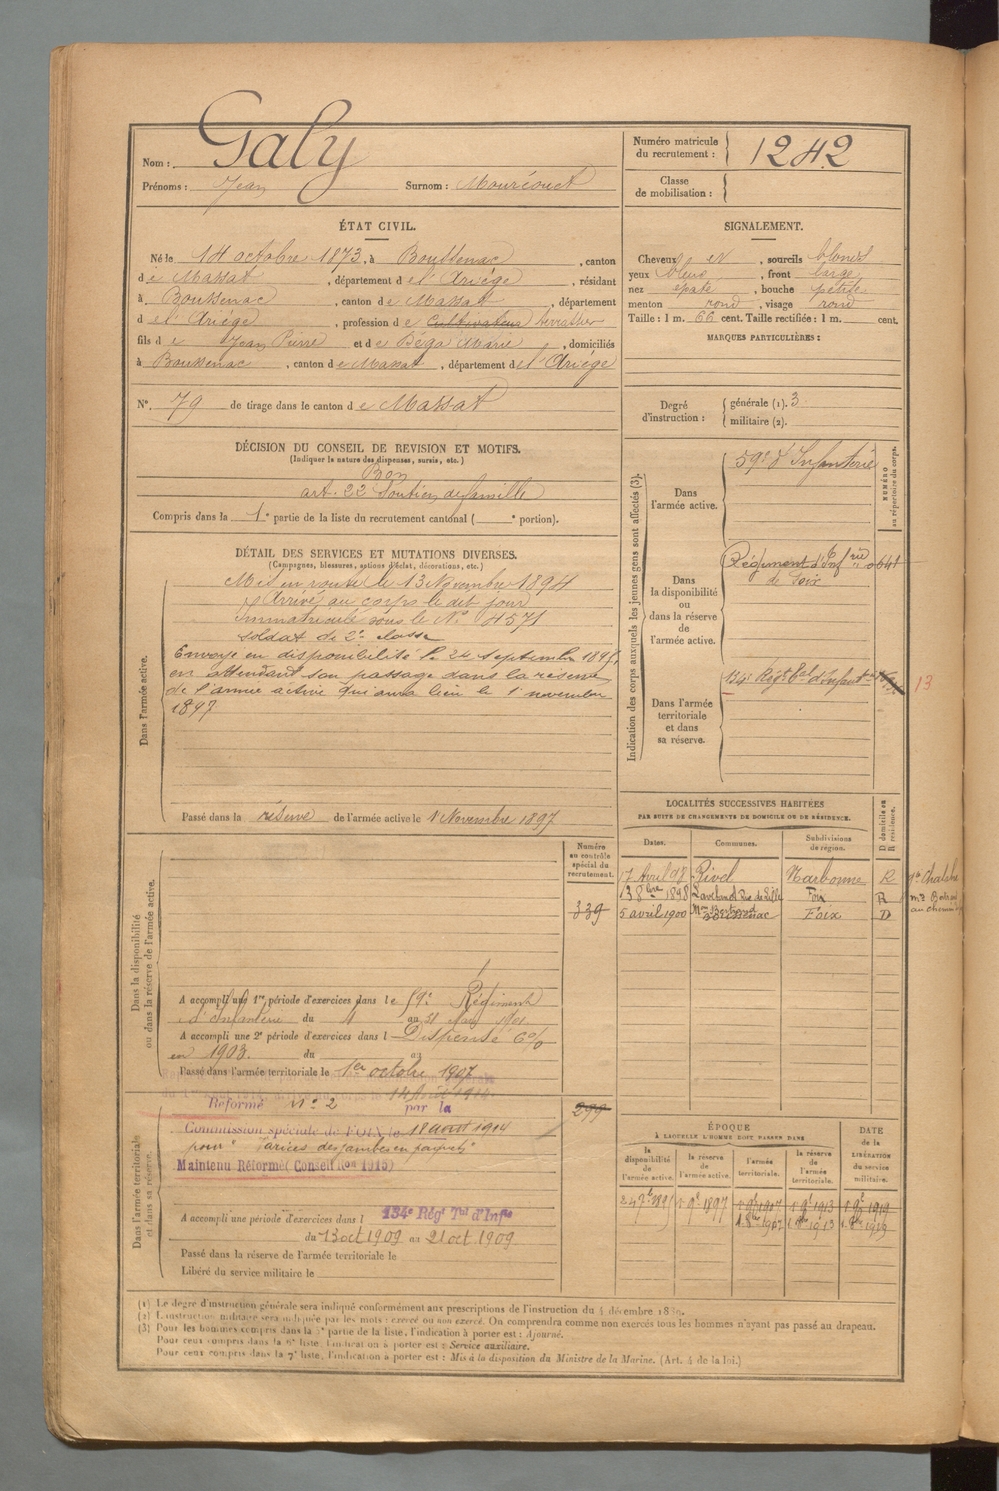 Nom : Galy
Prénoms : Jean Surnom : Mouréouet
Numéro matricule du recrutement : 1242
Classe de mobilisation :
ÉTAT CIVIL.
Né le 14 octobre 1873, à Boussenac, canton
de Massat, département de l'Ariége, résidant
à Boussenac, canton de Massat, département
de l'Ariége, profession de Cultivateur terrassier
fils de Jean Pierre et de Béga Marie, domiciliés
à Boussenac, canton de Massat, département de l'Ariége
N°. 79 de tirage dans le canton de Massat
SIGNALEMENT.
Cheveux et, sourcils blonds
yeux bleus, front large
nez épaté, bouche petite
menton rond, visage rond
Taille : 1 m. 66 cent. Taille rectifiée : 1 m. cent.
MARQUES PARTICULIÈRES :
Degré d'instruction : générale (1). 3
militaire (2).
DÉCISION DU CONSEIL DE REVISION ET MOTIFS.
(Indiquer la nature des dispenses, sursis, etc.)
Bon
art. 22 Soutien de famille
Compris dans la 1e partie de la liste du recrutement cantonal ( e portion).
DÉTAIL DES SERVICES ET MUTATIONS DIVERSES.
(Campagnes, blessures, actions d'éclat, décorations, etc.)
Dans l'armée active.
Mis en route le 13 Novembre 1894
Arrivé au corps le dit jour
Immatriculé sous le N° 4571
soldat de 2e classe
Envoyé en disponibilité le 24 septembre 1895,
en attendant son passage dans la réserve
de l'armée active qui aura lieu le 1 novembre
1897
Passé dans la réserve de l'armée active le 1 Novembre 1897
Indication des corps auxquels les jeunes gens sont affectés (3).
NUMÉRO au répertoire du corps.
Dans l'armée active.
59e d'Infanterie
Dans la disponibilité ou dans la réserve de l'armée active.
Régiment d'Infrie 0641
de Foix
Dans l'armée territoriale et dans sa réserve.
134e Régt tal d'Infanterie
13
LOCALITÉS SUCCESSIVES HABITÉES
PAR SUITE DE CHANGEMENTS DE DOMICILE OU DE RÉSIDENCE.
D domicile ou R résidence.
Dates. Communes. Subdivisions de région.
17 Avril 97 Rivel Narbonne R
13 8bre 1898 Lavelanet Foix R
5 avril 1900 Boussenac Foix D
Dans la disponibilité ou dans la réserve de l'armée active.
Numéro au contrôle spécial du recrutement.
339
A accompli une 1re période d'exercices dans le 59e Régiment
d'Infanterie du 4 au 31 1901
A accompli une 2e période d'exercices dans l Dispensé 6%
en 1903. du au
Passé dans l'armée territoriale le 1er octobre 1907
Dans l'armée territoriale et dans sa réserve.
299
Réformé n° 2 par la
Commission spéciale de FOIX le 18 août 1914
pour "Varices des jambes en paquets"
Maintenu Réformé (Conseil Ron 1915)
A accompli une période d'exercices dans l 134e Régt Tal d'Infie
du 13 oct 1909 au 21 oct 1909
Passé dans la réserve de l'armée territoriale le
Libéré du service militaire le
ÉPOQUE
À LAQUELLE L'HOMME DOIT PASSER DANS
DATE de la LIBÉRATION du service militaire.
la disponibilité de l'armée active. la réserve de l'armée active. l'armée territoriale. la réserve de l'armée territoriale.
24 7bre 1895 1 9bre 1897 1 9bre 1907 1 9bre 1913 1 9bre 1919
1. 8bre 1907 1. 8bre 1913 1. 8bre 1919
(1) Le degré d'instruction générale sera indiqué conformément aux prescriptions de l'instruction du 4 décembre 1889.
(2) L'instruction militaire sera indiquée par les mots : exercé ou non exercé. On comprendra comme non exercés tous les hommes n'ayant pas passé au drapeau.
(3) Pour les hommes compris dans la 5e partie de la liste, l'indication à porter est : Ajourné.
Pour ceux compris dans la 6e liste, l'indication à porter est : Service auxiliaire.
Pour ceux compris dans la 7e liste, l'indication à porter est : Mis à la disposition du Ministre de la Marine. (Art. 4 de la loi.)